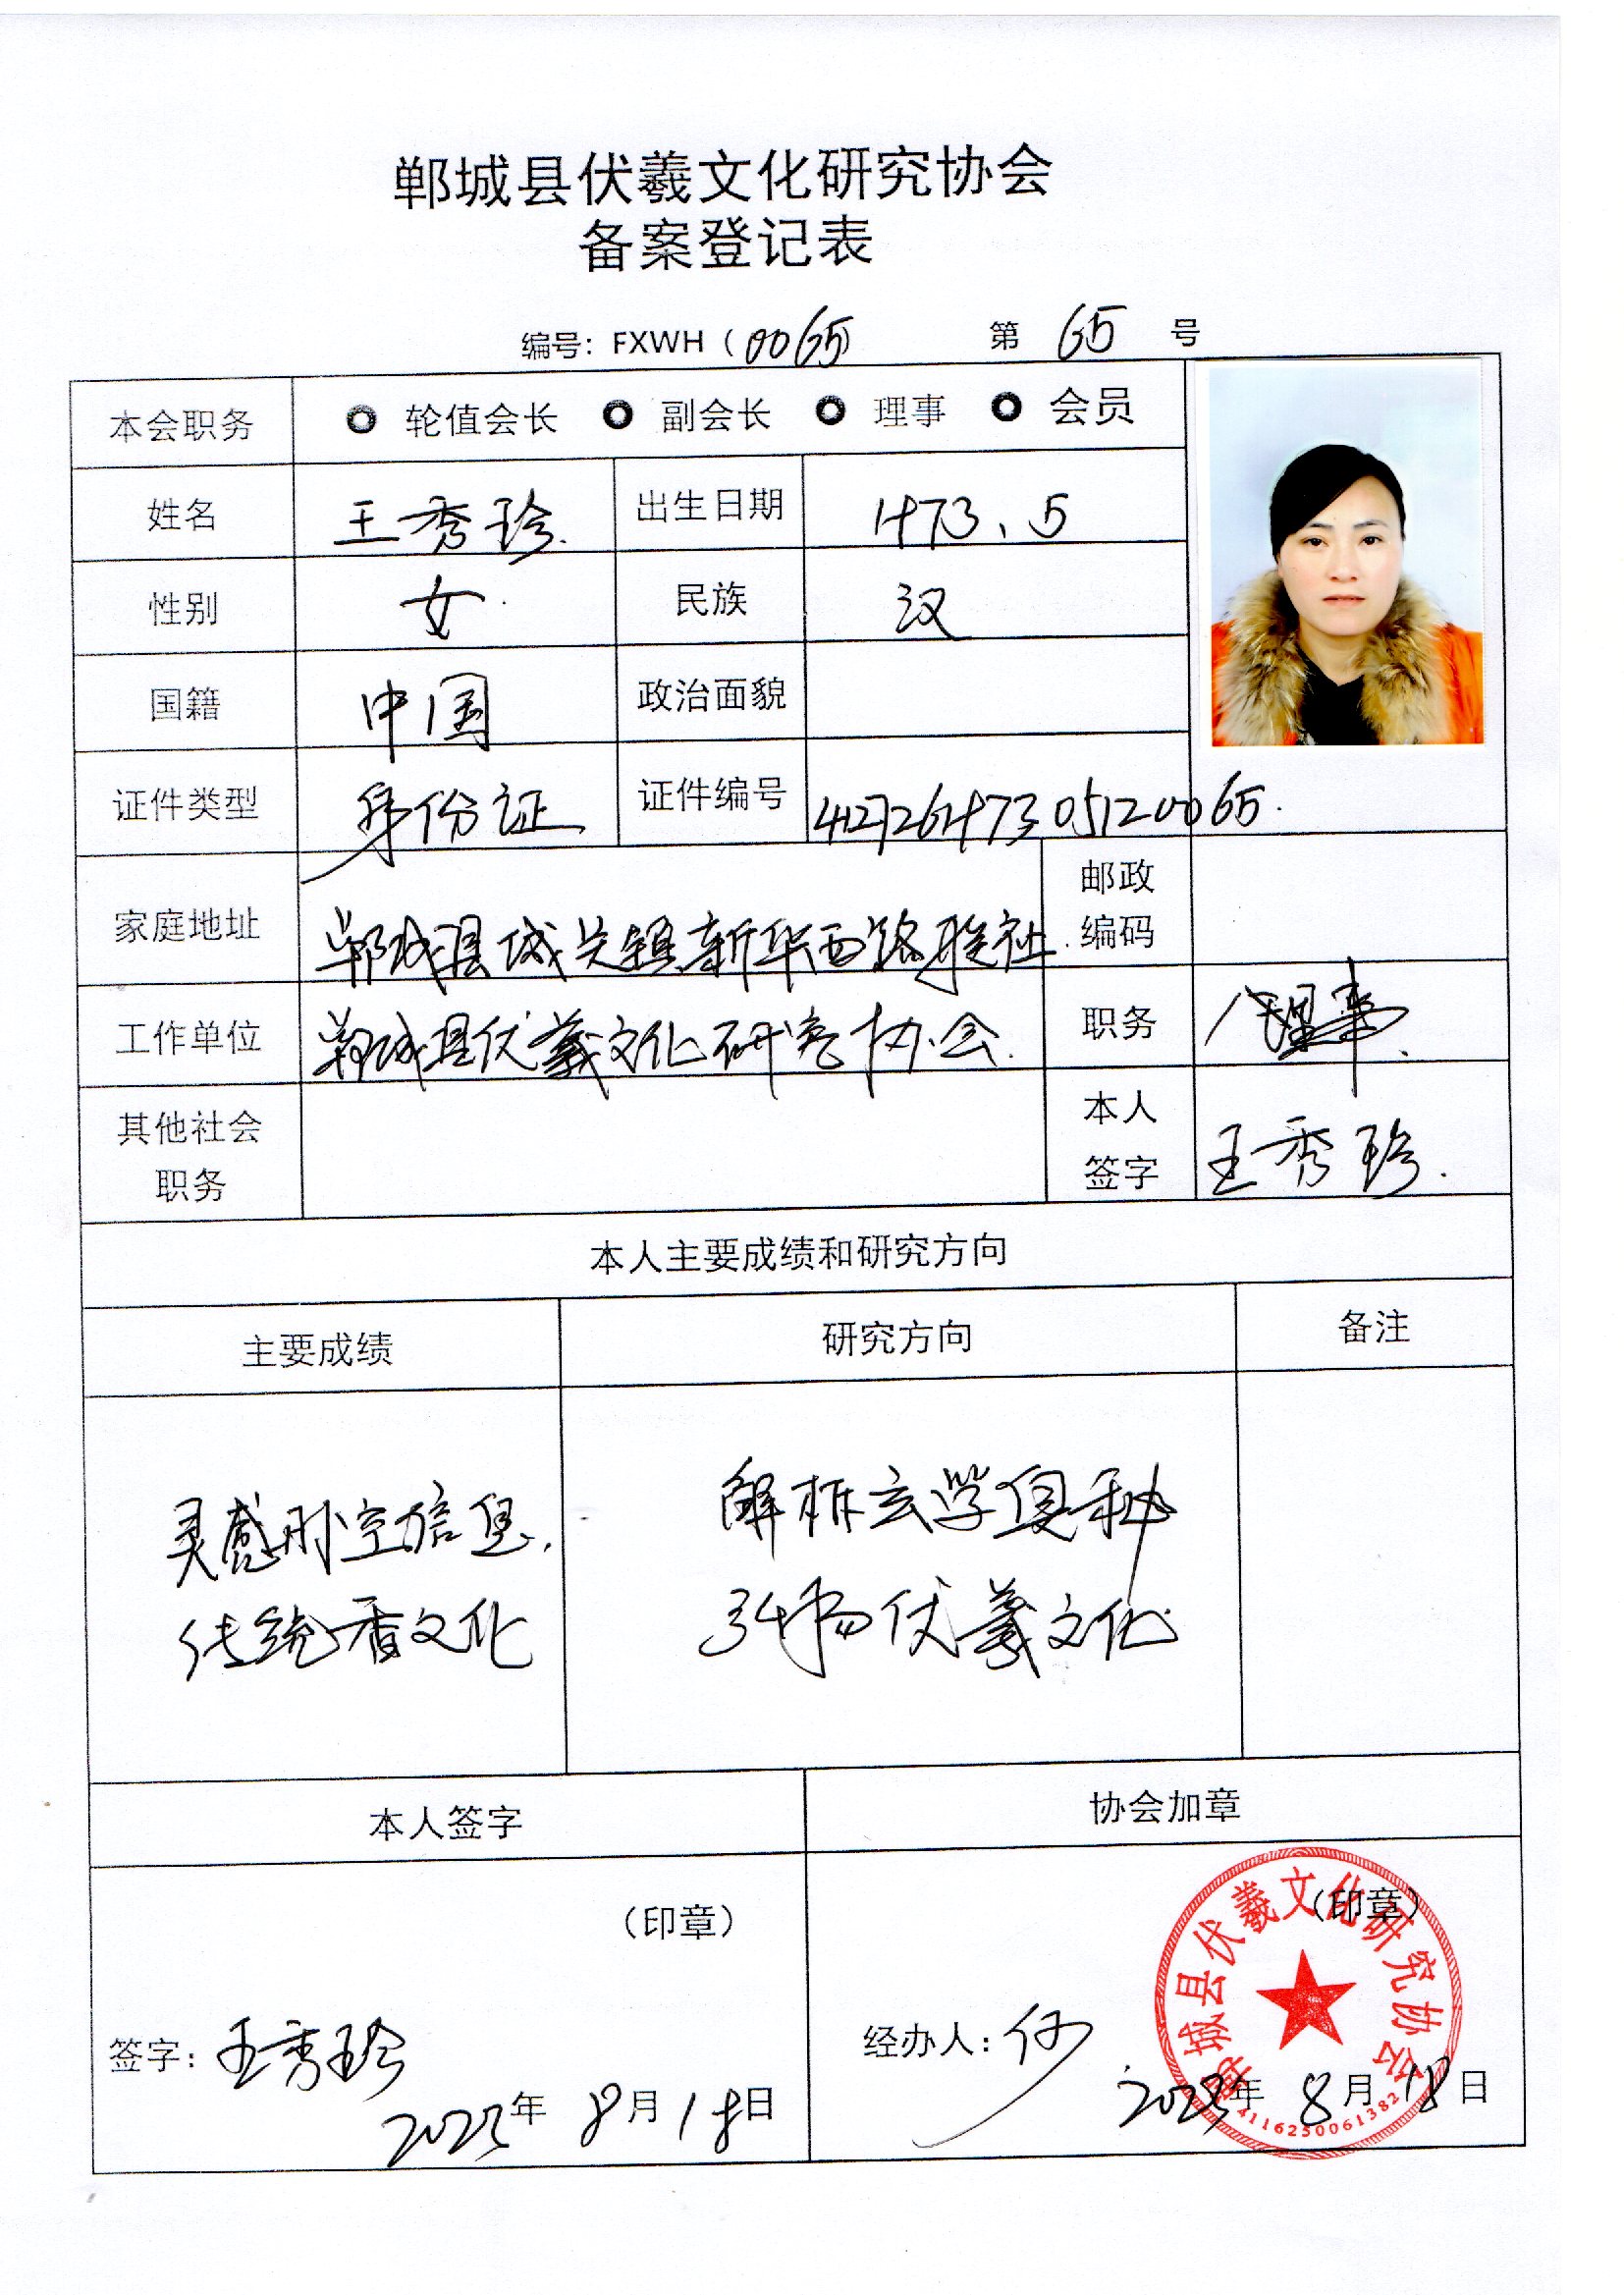 郸城县伏羲文化研究协会
备案登记表
编号：FXWH（0065） 第 65 号
本会职务 轮值会长 副会长 理事 会员
姓名 王秀珍 出生日期 1973、5
性别 女 民族 汉
国籍 中国 政治面貌
证件类型 身份证 证件编号
家庭地址 郸城县城关镇新华西路联社 邮政编码
工作单位 郸城县伏羲文化研究协会 职务 理事
其他社会职务 本人签字 王秀珍
本人主要成绩和研究方向
主要成绩 研究方向 备注
灵感时空信息，
传统香文化
解析玄学奥秘
弘扬伏羲文化
本人签字 协会加章
（印章） （印章）
郸城县伏羲文化研究协会
签字：王秀珍 经办人：
2023年 8月18日 2023年 8月18日
4116250061382